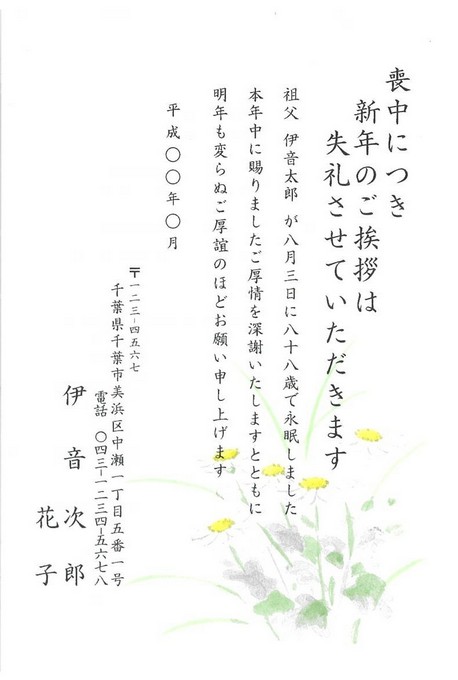 喪中につき
新年のご挨拶は
失礼させていただきます
祖父 伊音太郎 が八月三日に八十八歳で永眠しました
本年中に賜りましたご厚情を深謝いたしますとともに
明年も変らぬご厚誼のほどお願い申し上げます
平成〇〇年〇月
〒一二三-四五六七
千葉県千葉市美浜区中瀬一丁目五番一号
電話 〇四三-一二三四-五六七八
伊音 次郎
花子